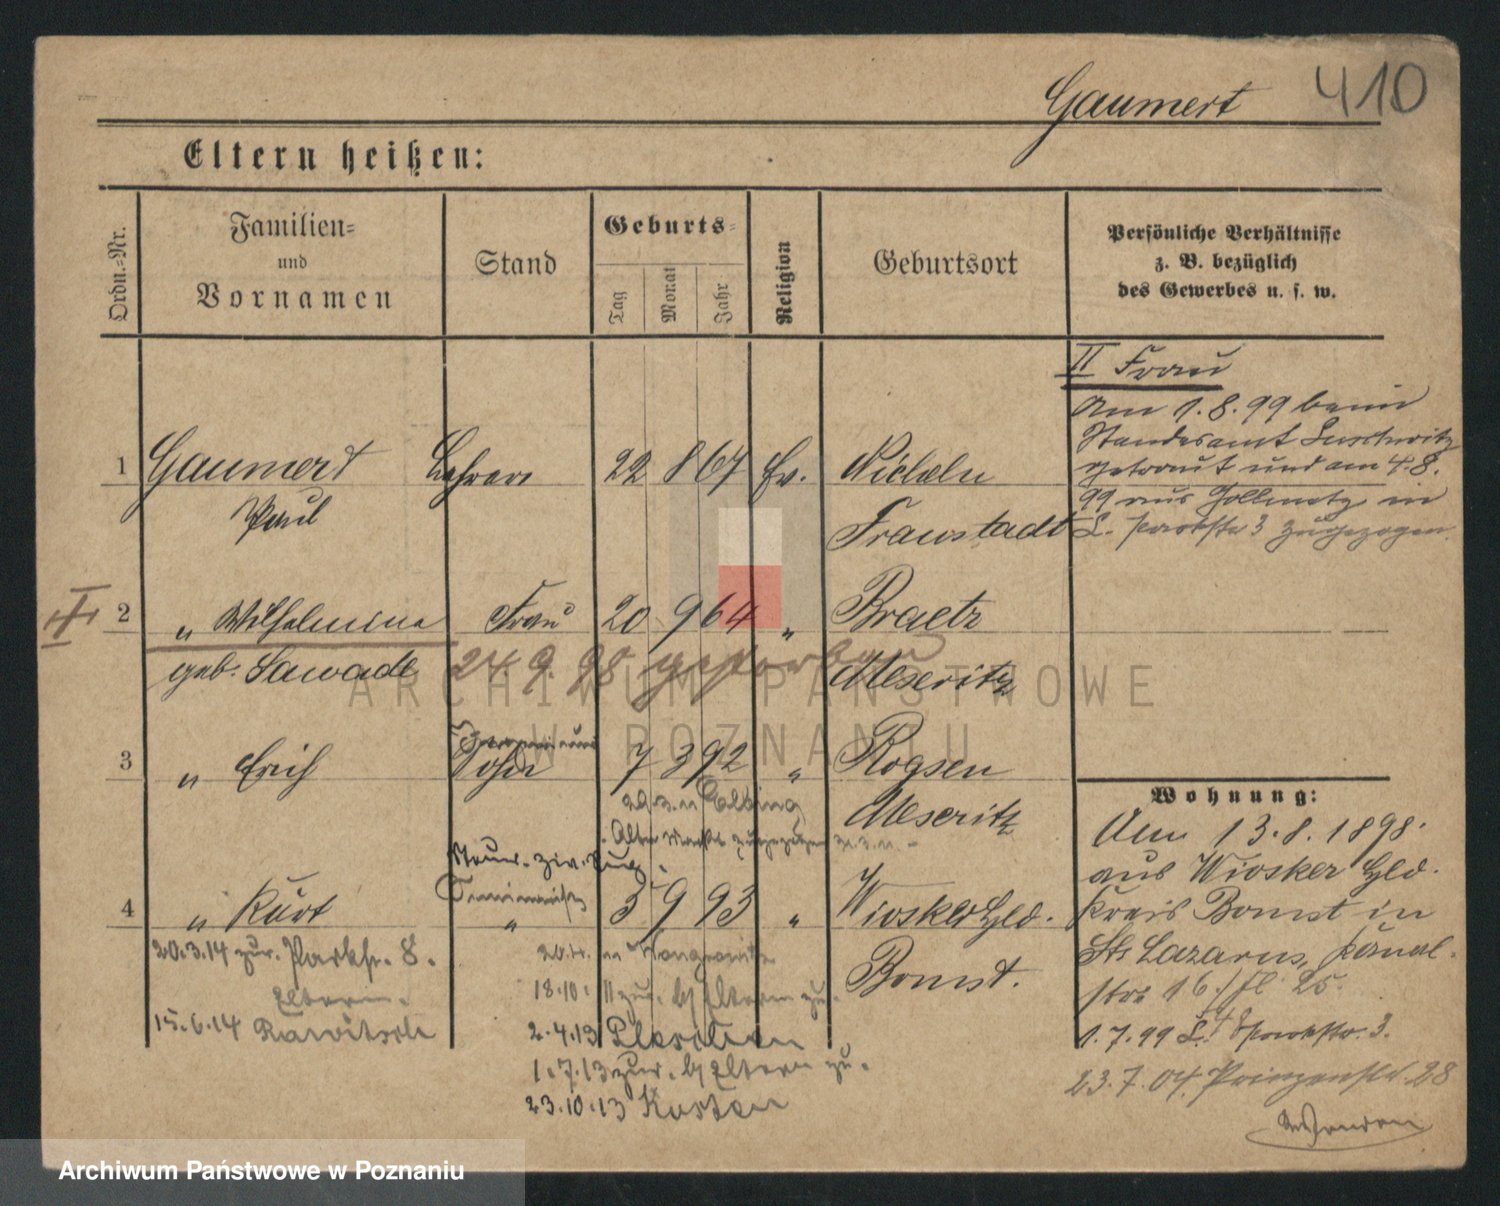 Gaumert 410
Eltern heißen:
Ordn.=Nr.
Familien=
und
Vornamen
Stand
Geburts=
Tag
Monat
Jahr
Religion
Geburtsort
Persönliche Verhältnisse
z. B. bezüglich
des Gewerbes u. s. w.
1 Gaumert Lehrer 22 8 67 Ev. Nicheln
Paul Fraustadt
II Frau
Am 1.8.99 beim
Standesamt
getraut und am 4.8.
99 aus Gollmütz in
L. Parkstr 3 zugezogen.
2 " Wilhelmine Frau 20 9 64 " Braetz
geb. Sawade 24.9.98 gestorben Meseritz
3 " Erich Sohn 7 3 92 " Rogsen
Meseritz
29.3. n Elbing
Alter Markt zugezogen
4 " Kurt " 3 9 93 " Wiosker Hld.
Bomst.
20.3.14 zur. Parkstr. 8.
Eltern.
15.6.14 Rawitsch
20.4. n Wongrowitz
18.10. zur. b/ Eltern zu.
2.4.13 Pleschen
1.7.13 zur. b/ Eltern zu.
23.10.13 Kosten
Wohnung:
Am 13.8.1898.
aus Wiosker Hld.
Kreis Bomst in
St. Lazarus, Kanal-
str 16/
1.7.99 L. Parkstr. 3.
23.7.04. Prinzenstr. 28
ARCHIWUM PAŃSTWOWE
W POZNANIU
Archiwum Państwowe w Poznaniu